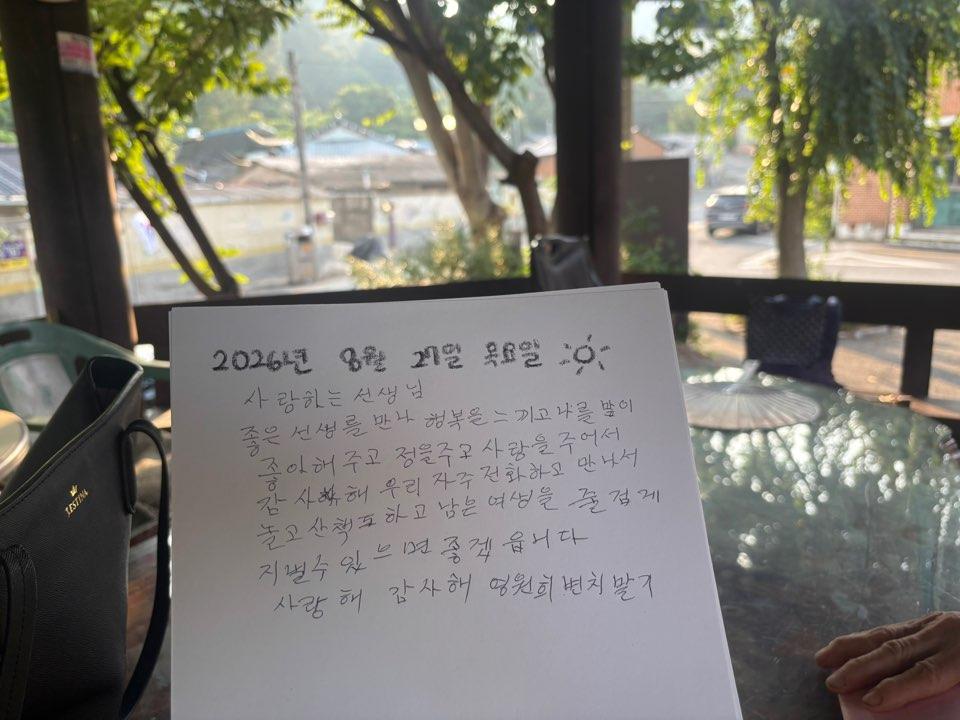 2026년 8월 27일 목요일
사랑하는 선생님
좋은 선생를 만나 행복을 느끼고 나를 많이
좋아해 주고 정을주고 사랑을 주어서
감사해 우리 자주전화하고 만나서
놀고 산책도하고 남은 여생을 즐겁게
지낼수 있으면 좋겠읍니다
사랑해 감사해 영원희변치말기
LESTINA